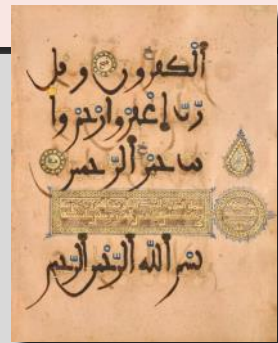 الكفرون وقل
رب اغفر وارحم وا
نت خير الرحمين
بسم الله الرحمن الرحيم